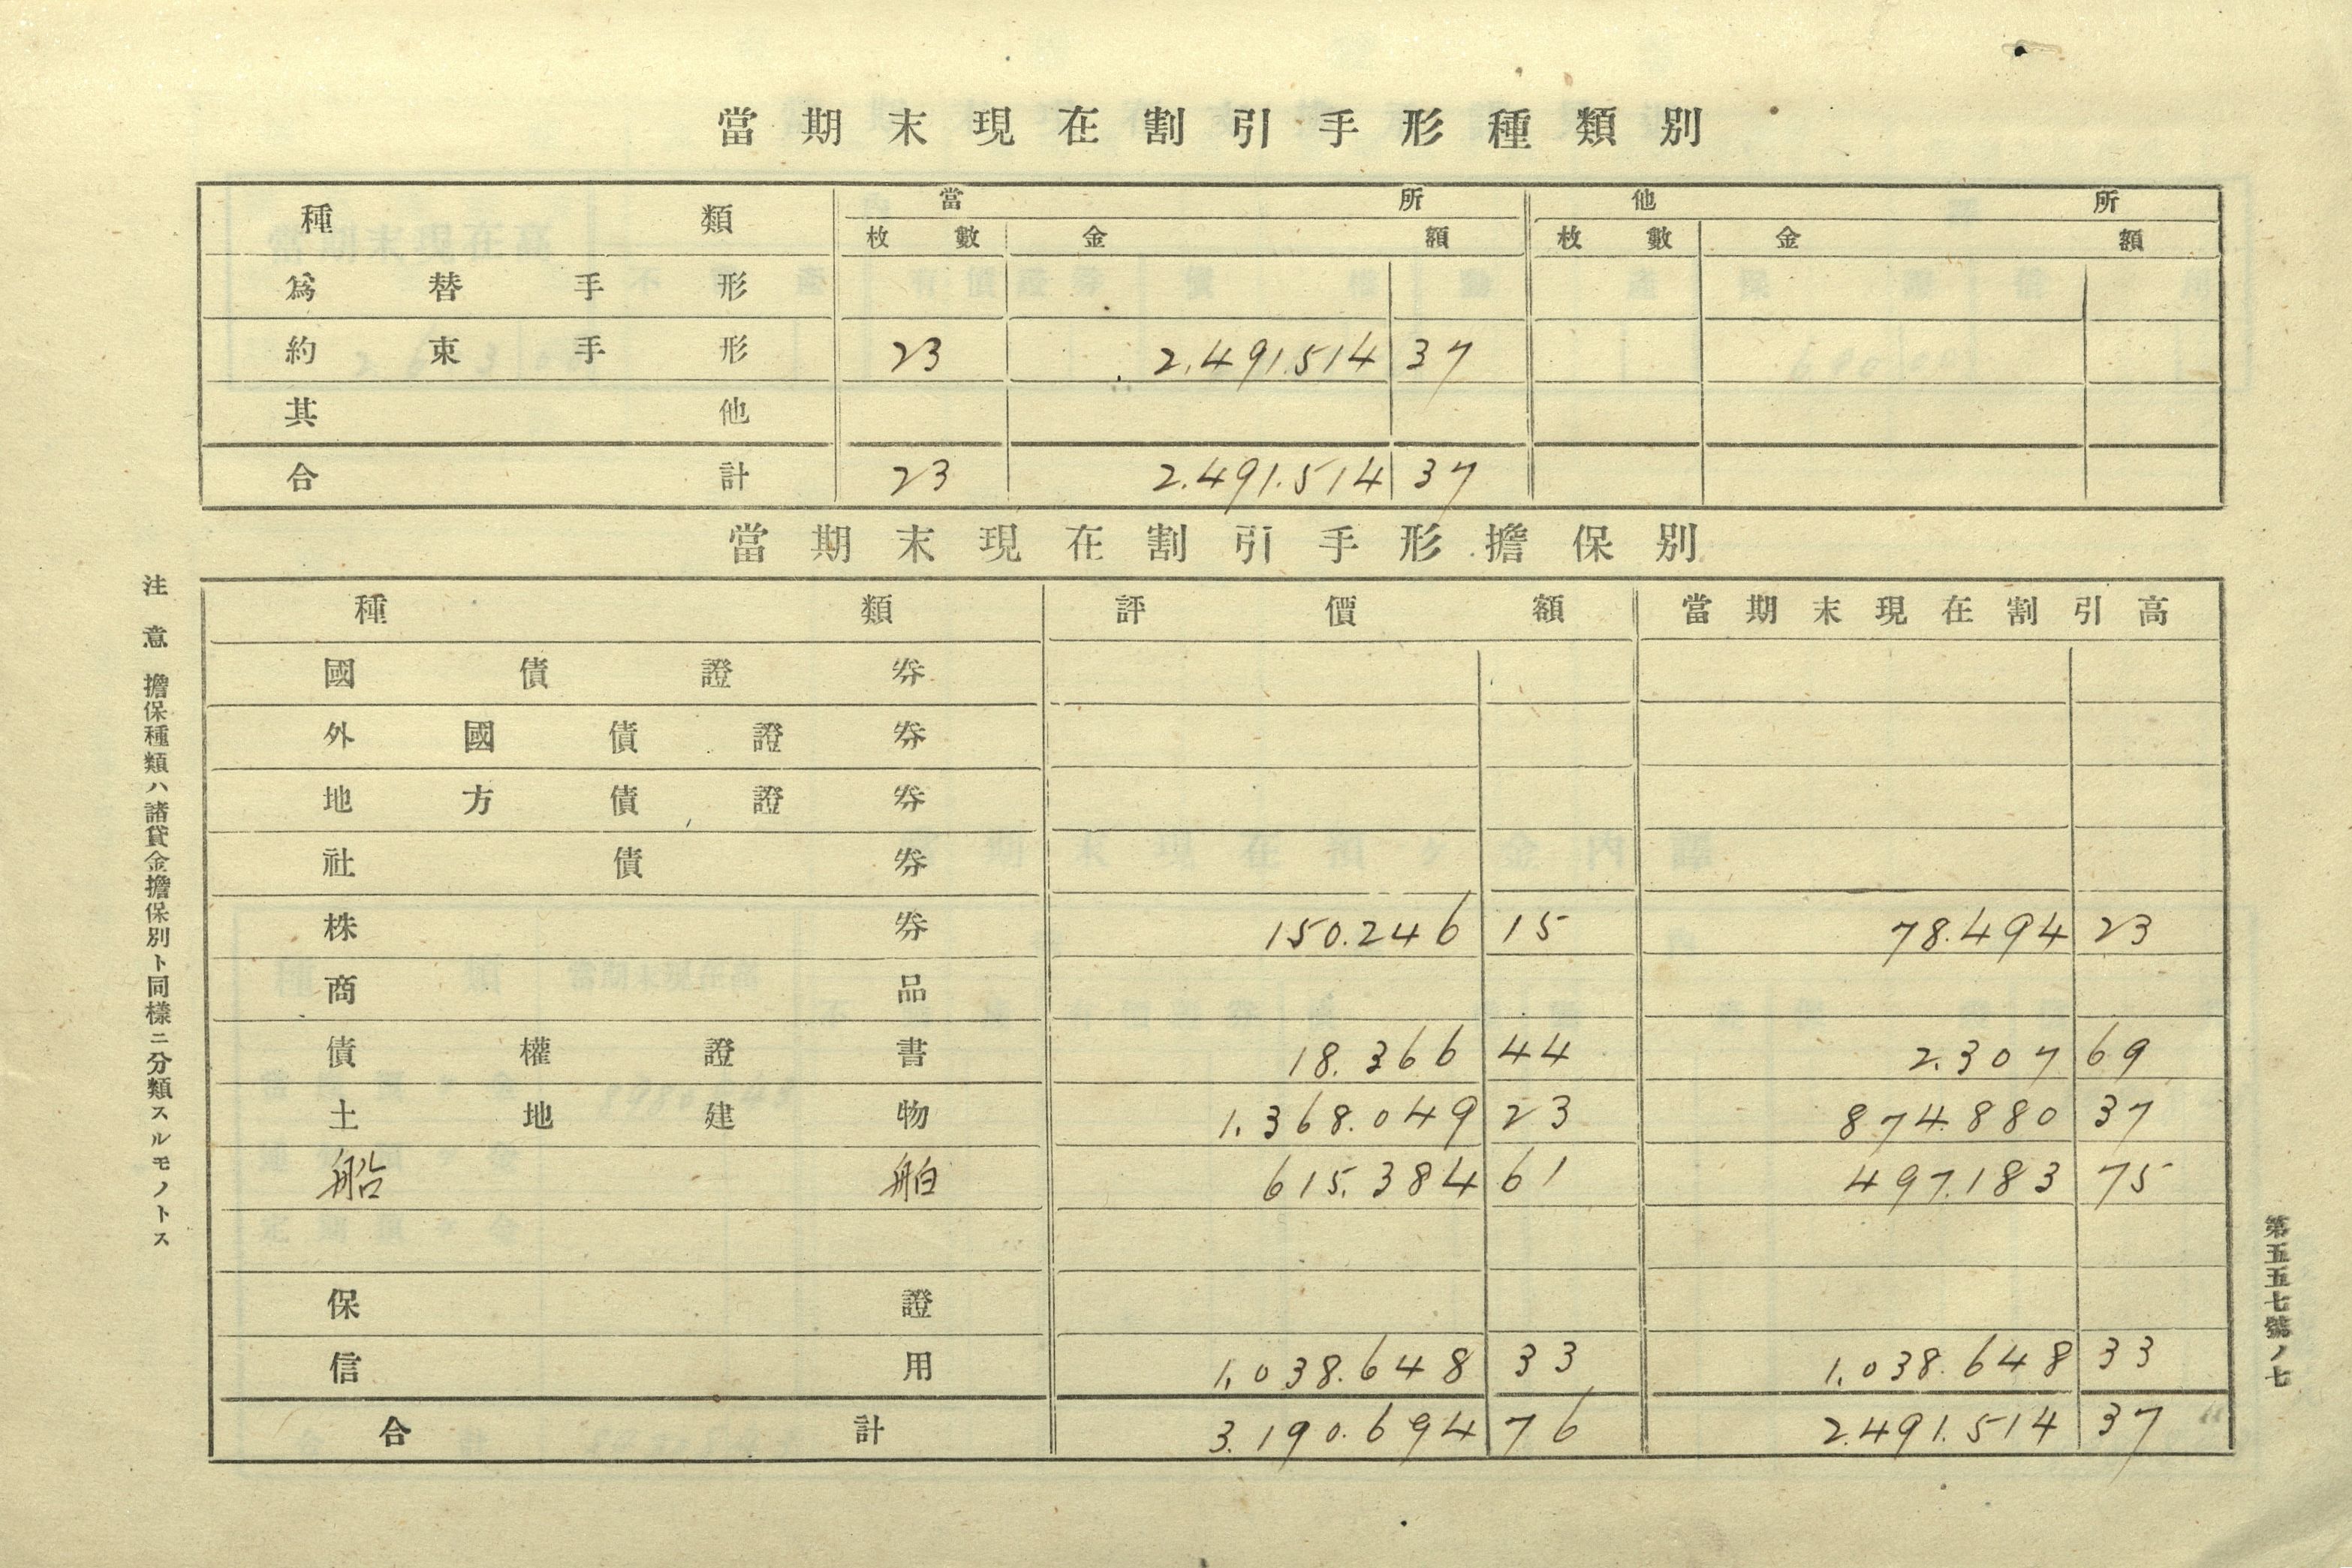 當期末現在割引手形種類別
種類 當所 他所
枚數 金額 枚數 金額
爲替手形
約束手形 23 2.491.514 37
其他
合計 23 2.491.514 37
當期末現在割引手形擔保別
種類 評價額 當期末現在割引高
國債證券
外國債證券
地方債證券
社債券
株券 150.246 15 78.494 23
商品
債權證書 18.366 44 2.307 69
土地建物 1.368.049 23 874.880 37
船舶 615.384 61 497.183 75
保證
信用 1.038.648 33 1.038.648 33
合計 3.190.694 76 2.491.514 37
注意 擔保種類ハ諸貸金擔保別ト同樣ニ分類スルモノトス
第五五七號ノ七